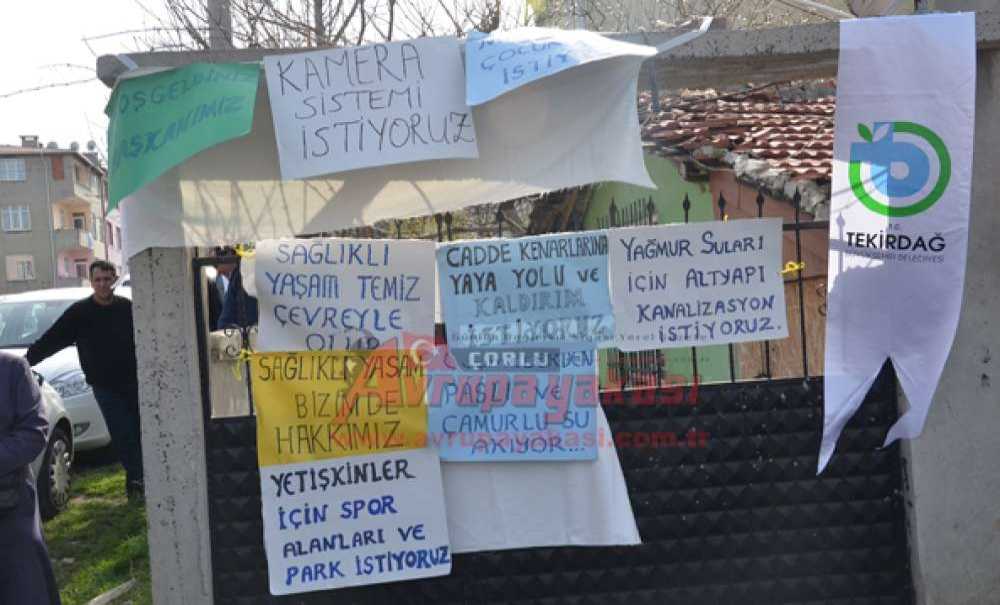 OŞGELDİNİZ
BAŞKANIMIZ
KAMERA
SİSTEMİ
İSTİYORUZ
ÇOCUK
İSTİY
T.C.
TEKİRDAĞ
BÜYÜKŞEHİR BELEDİYESİ
SAĞLIKLI
YAŞAM TEMİZ
ÇEVREYLE
OLUR
CADDE KENARLARINA
YAYA YOLU VE
KALDIRIM
İSTİYORUZ
YAĞMUR SULARI
İÇİN ALTYAPI
KANALİZASYON
İSTİYORUZ.
SAĞLIKLI YAŞAM
BİZİMDE
HAKKIMIZ
PASLI VE
ÇAMURLU SU
AKIYOR...
YETİŞXİNLER
İÇİN SPOR
ALANLARI VE
PARK İSTİYORUZ
ÇORLU
Avrupa yakası
www.avrupayakasi.com.tr